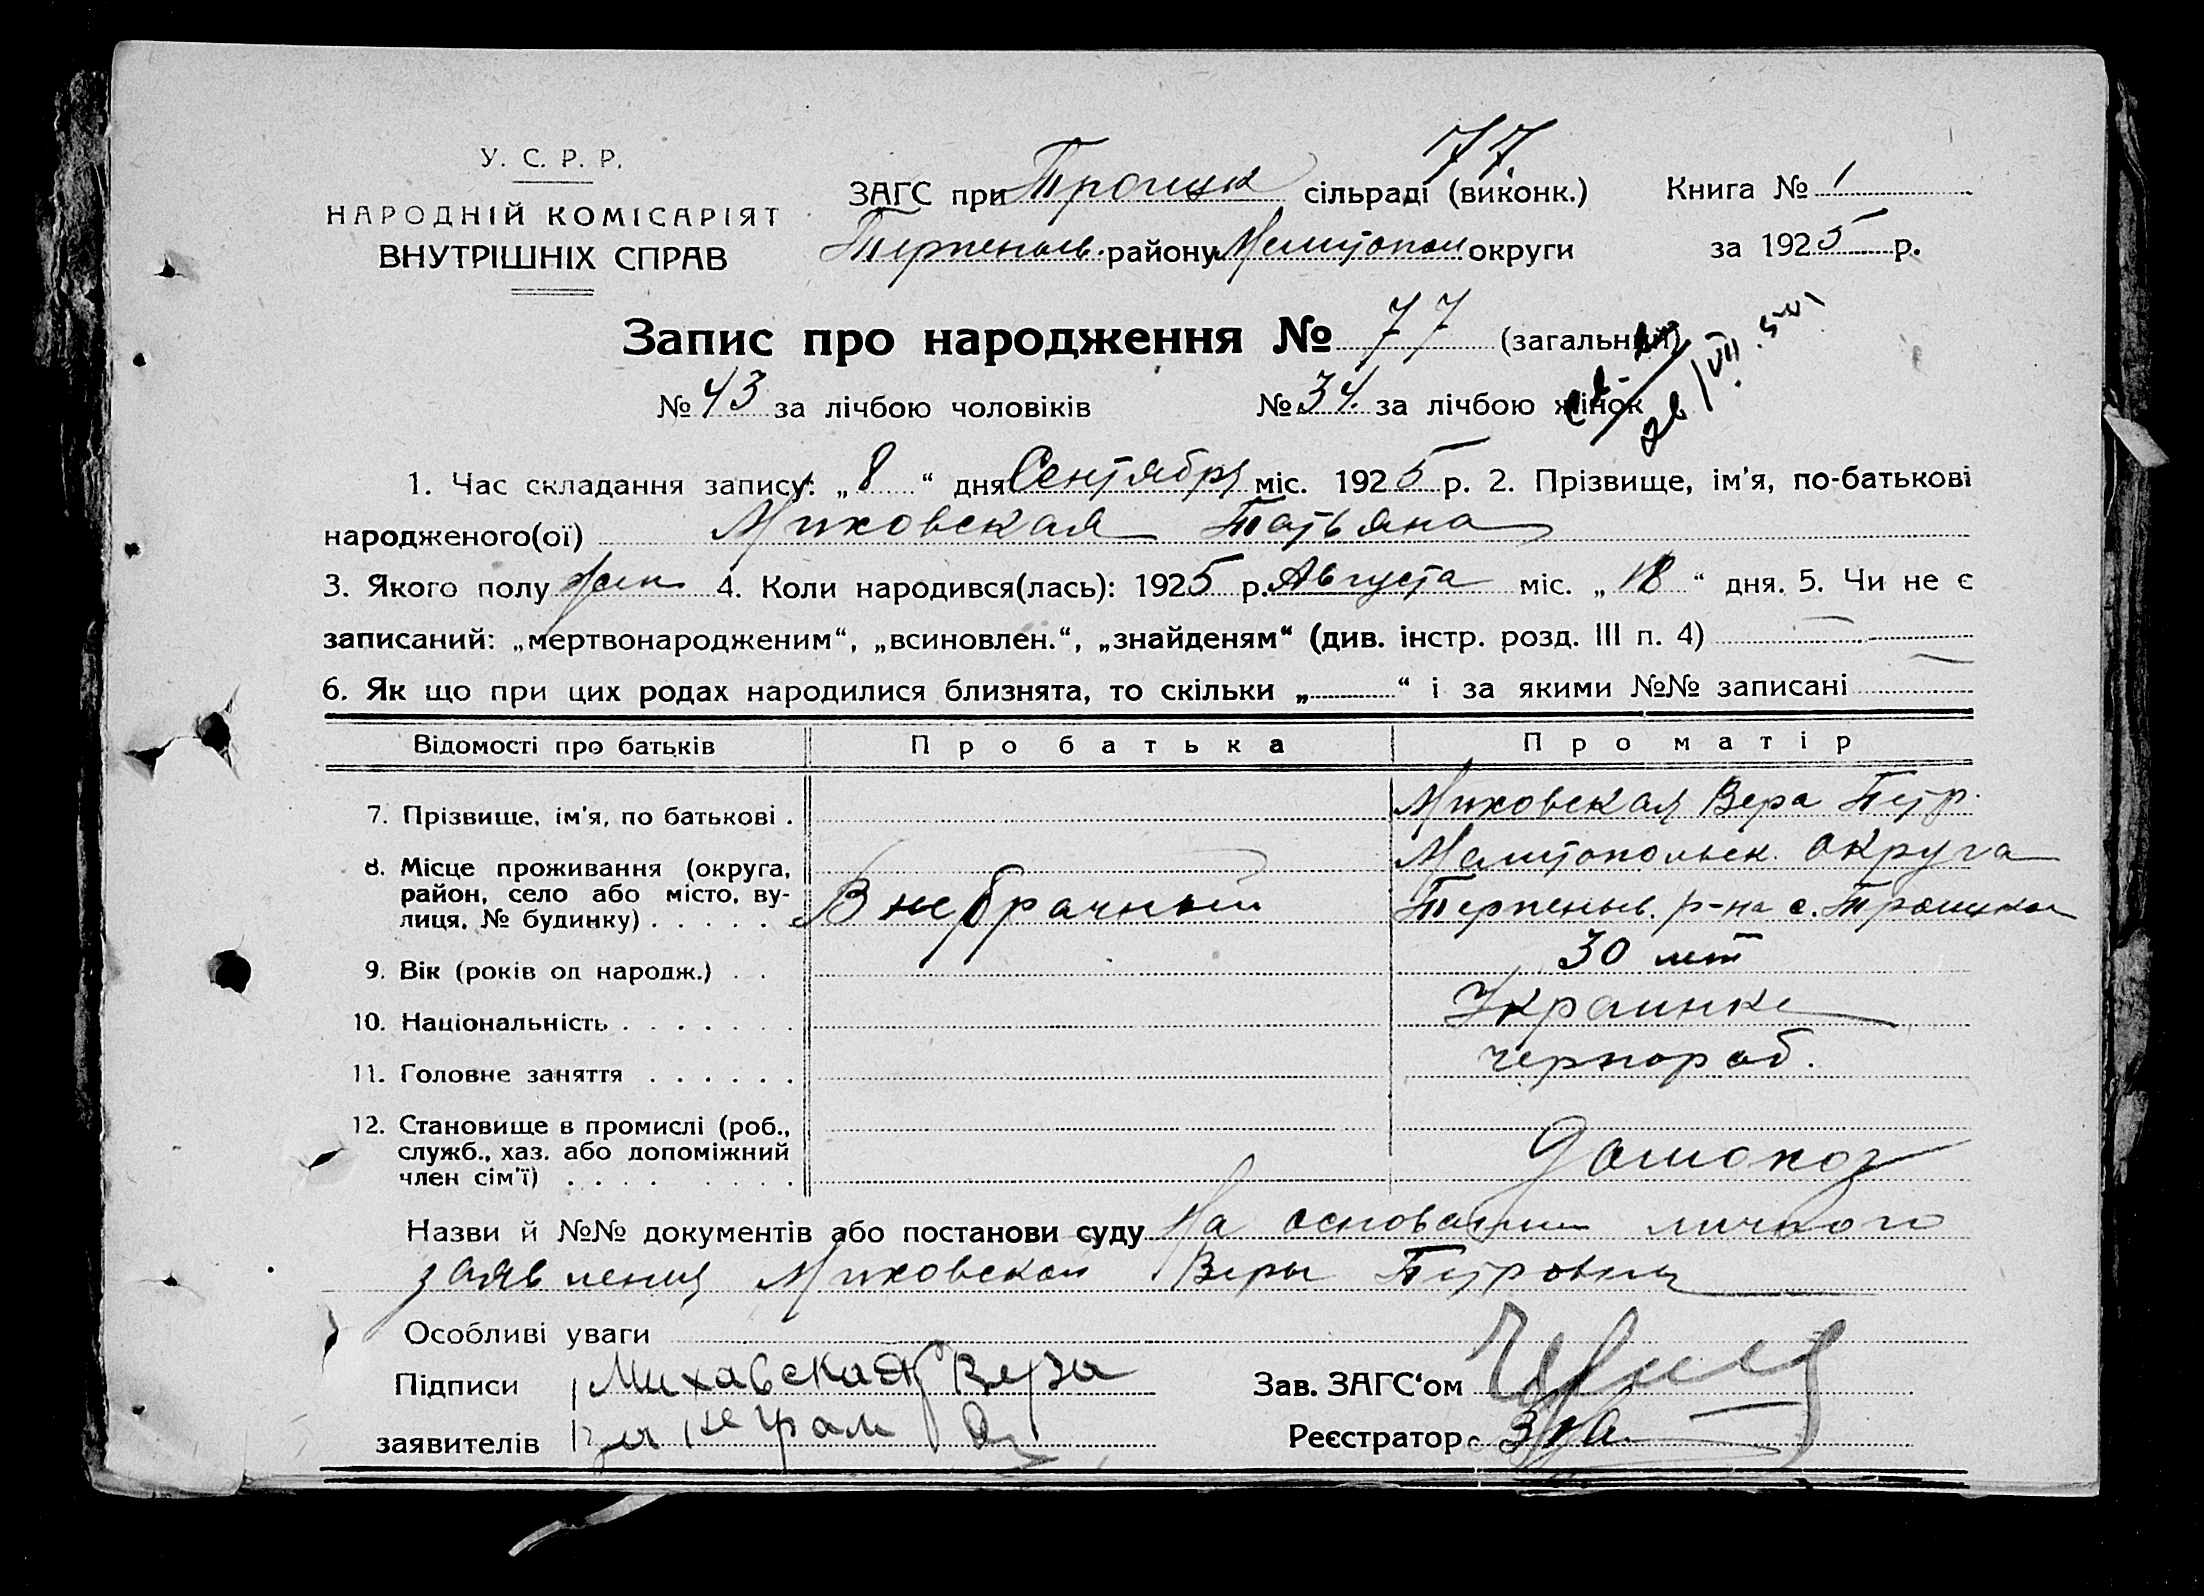 77.
У. С. Р. Р.
НАРОДНІЙ КОМІСАРІЯТ
ВНУТРІШНІХ СПРАВ
ЗАГС при Троицк сільраді (виконк.) Книга № 1
Терпеньев. району Мелитопол округи за 1925 р.
Запис про народження № 77 (загальний)
№ 43 за лічбою чоловіків № 34. за лічбою жінок
26/VII.
1. Час складання запису: „8“ дня Сентября міс. 1925 р. 2. Прізвище, ім'я, по-батькові
народженого(ої) Миховская Татьяна
3. Якого полу жен 4. Коли народився(лась): 1925 р. Августа міс. „18“ дня. 5. Чи не є
записаний: „мертвонародженим“, „всиновлен.“, „знайденям“ (див. інстр. розд. III п. 4) —
6. Як що при цих родах народилися близнята, то скільки „......“ і за якими №№ записані —
Відомості про батьків Про батька Про матір
7. Прізвище, ім'я, по батькові . Миховская Вера Петр.
8. Місце проживання (округа, Мелитопольск. округа
район, село або місто, ву-
лиця, № будинку) . . . . . Внебрачный Терпеньев. р-на с. Троицкое
9. Вік (років од народж.) . . 30 лет
10. Національність . . . . . . . Украинка
11. Головне заняття . . . . . . чернораб.
12. Становище в промислі (роб.,
служб., хаз. або допоміжний
член сім'ї) . . . . . . . . домохоз
Назви й №№ документів або постанови суду На основании личного
заявления Миховской Веры Петровны
Особливі уваги
Підписи Михавская Вера
заявителів
Зав. ЗАГС'ом
Реєстратор